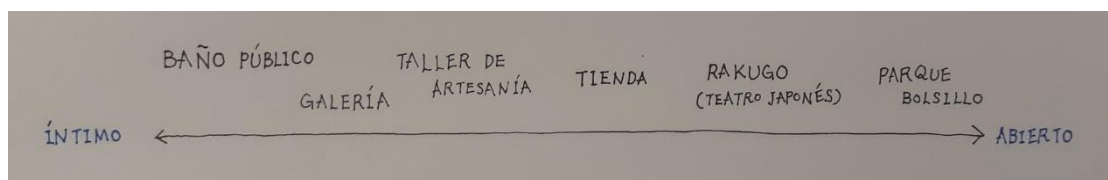 BAÑO PÚBLICO
GALERÍA
TALLER DE
ARTESANÍA
TIENDA
RAKUGO
(TEATRO JAPONÉS)
PARQUE
BOLSILLO
ÍNTIMO
ABIERTO